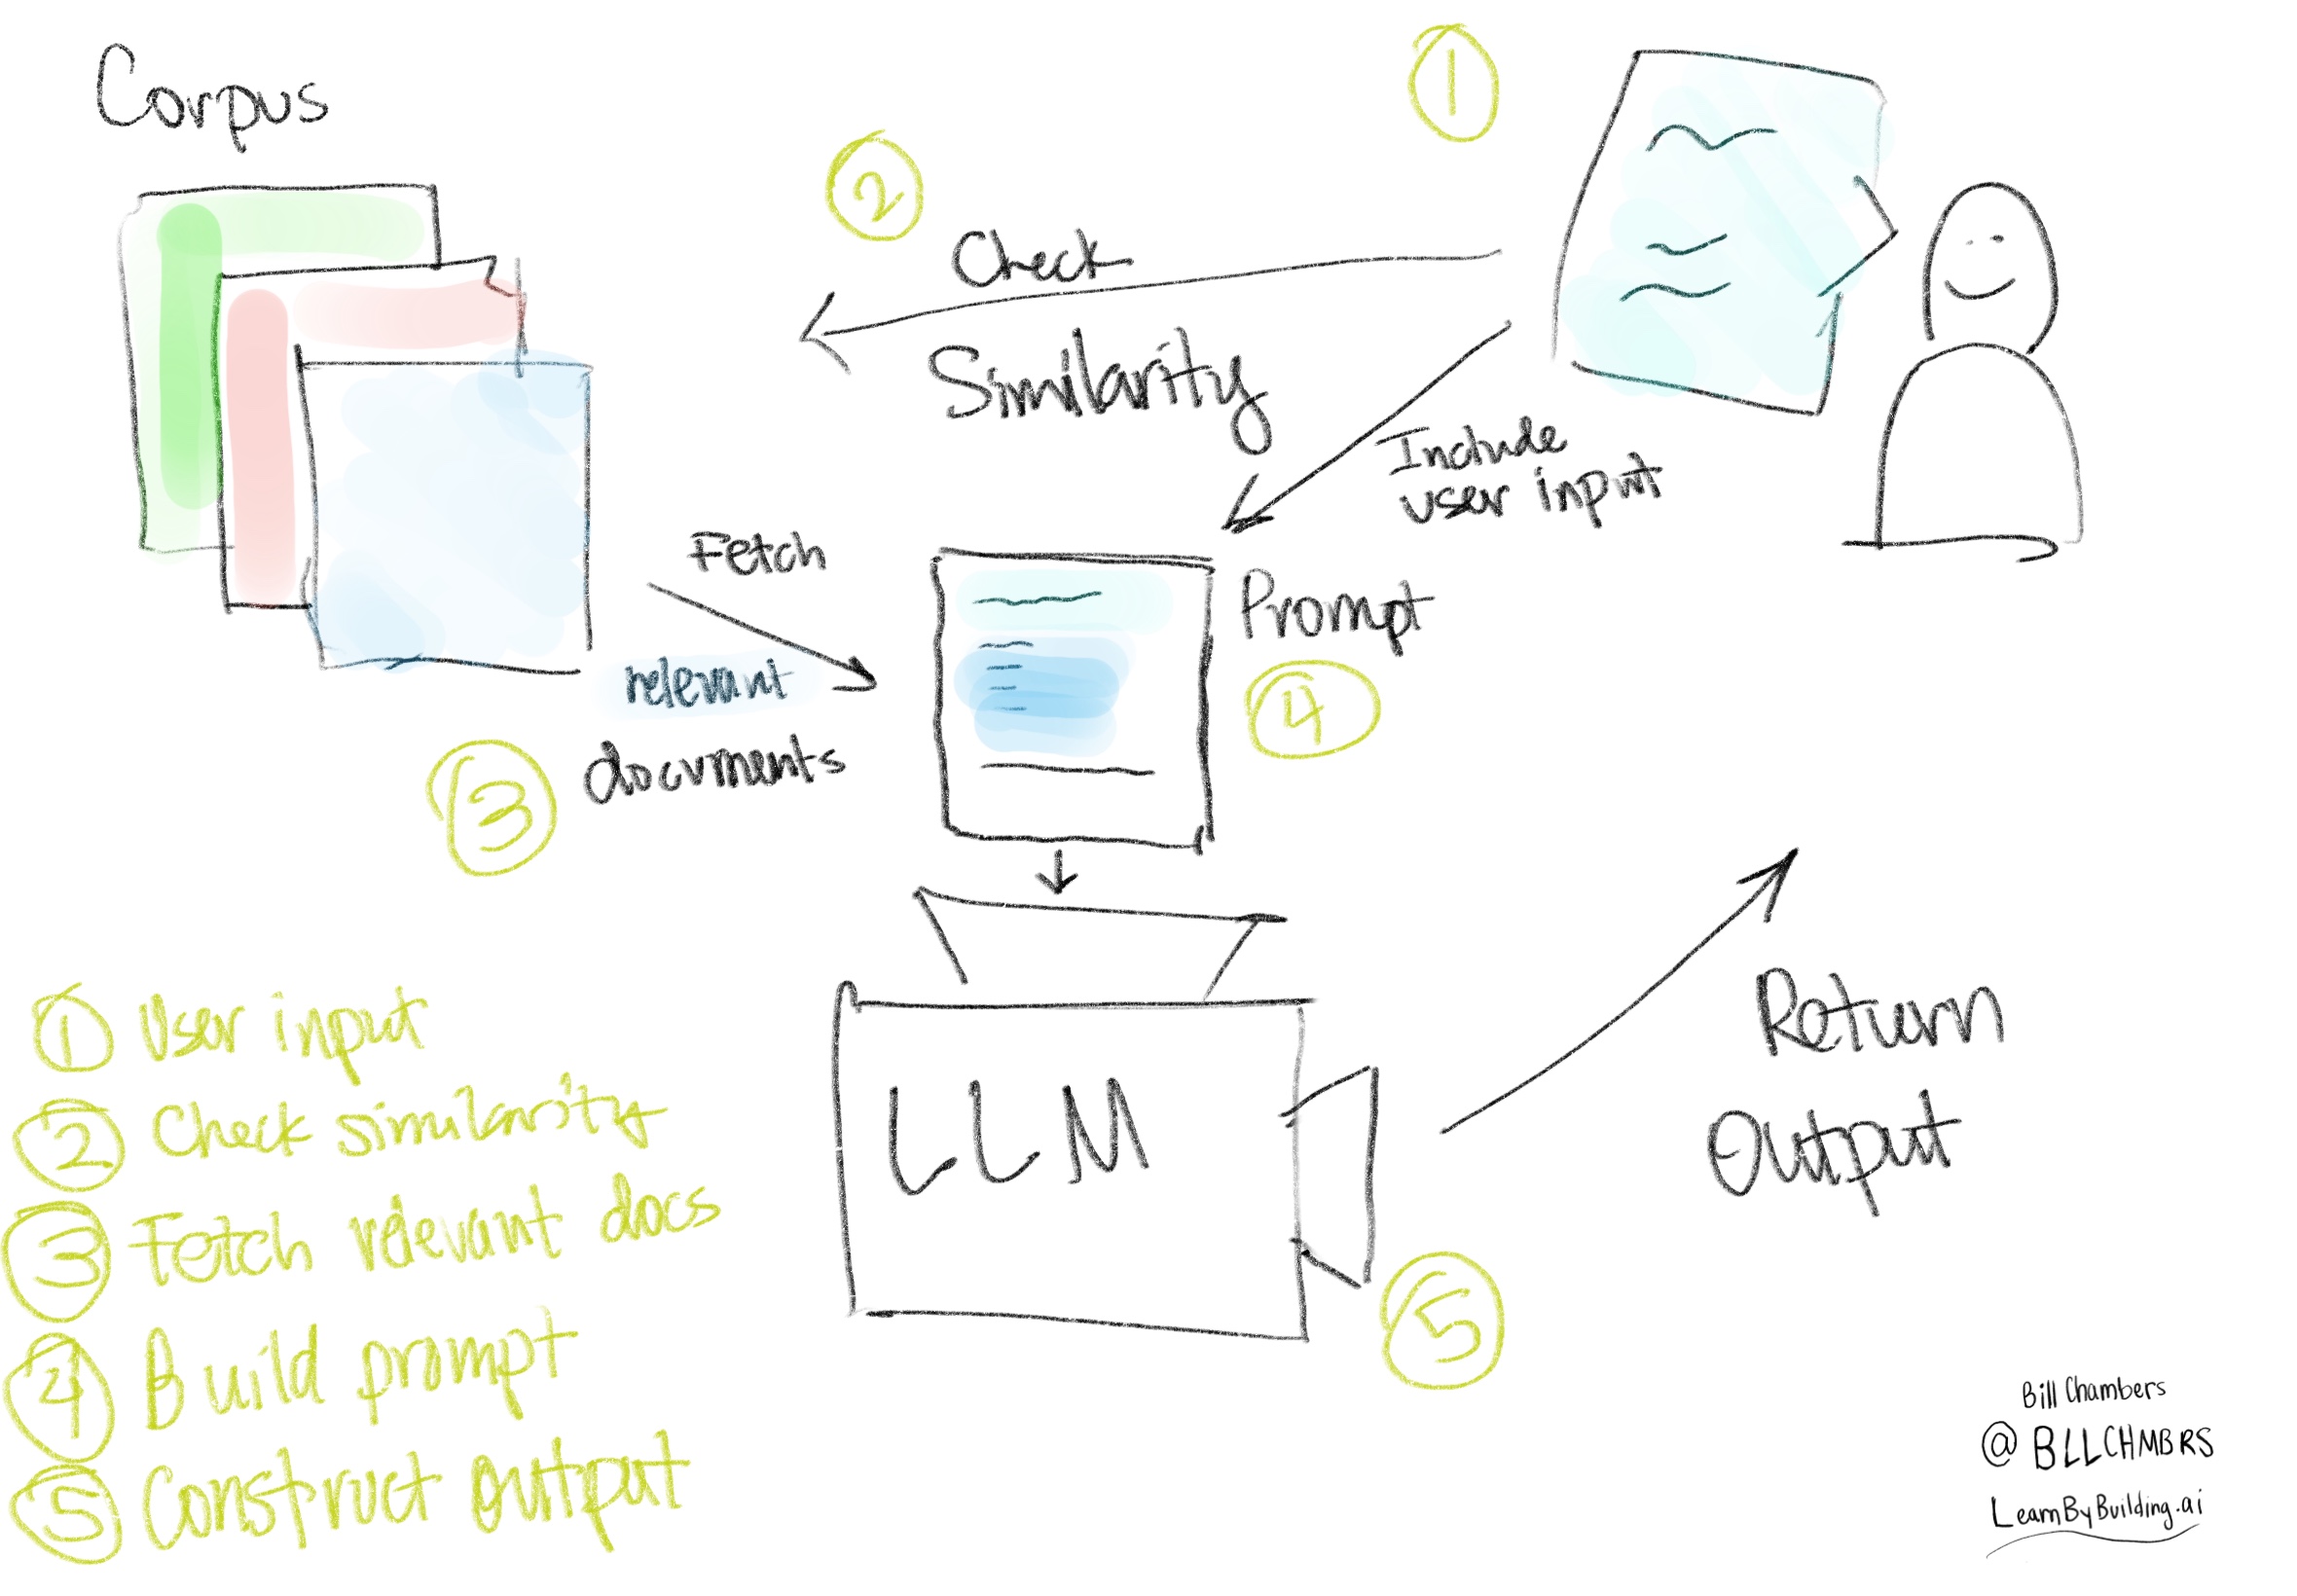 Corpus
1
2
Check
Similarity
Include
user input
Fetch
relevant
documents
3
Prompt
4
LLM
5
Return
Output
1 User input
2 Check similarity
3 Fetch relevant docs
4 Build prompt
5 Construct output
Bill Chambers
@BLLCHMBRS
LearnByBuilding.ai